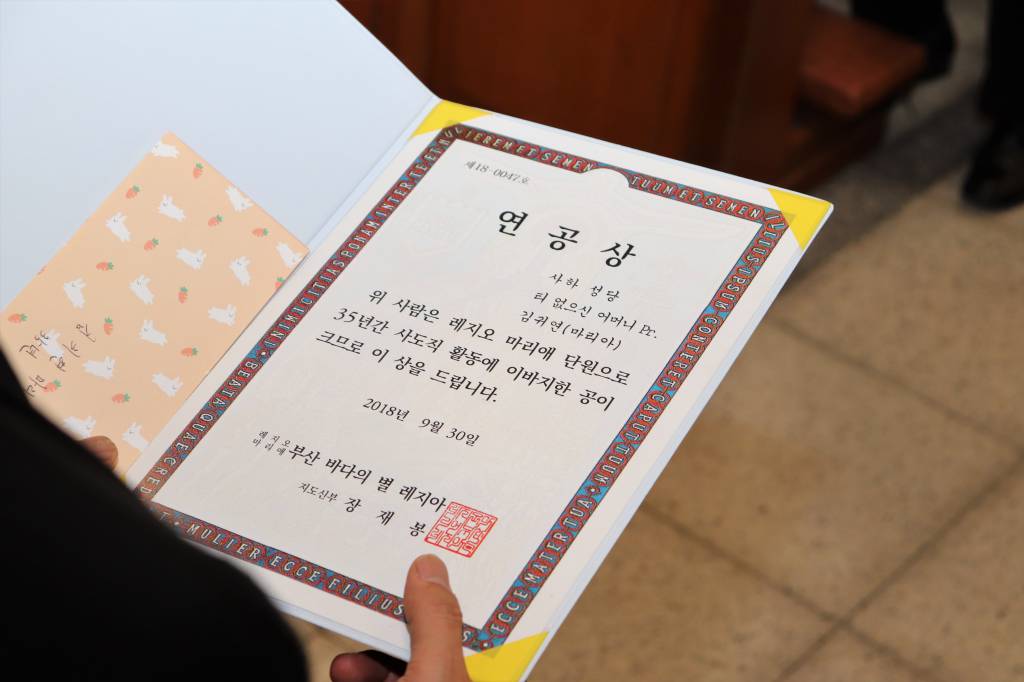 제18-0047호
연 공 상
사하 성당
티 없으신 어머니 Pr.
김귀연(마리아)
위 사람은 레지오 마리애 단원으로
35년간 사도직 활동에 이바지한 공이
크므로 이 상을 드립니다.
2018년 9월 30일
레지오
마리애 부산 바다의 별 레지아
지도신부 장 재 봉
INIMICITIAS PONAM INTER TE ET MULIEREM ET SEMEN TUUM ET SEMEN ILLIUS IPSUM CONTERET CAPUT TUUM
BEATA QUAE CRED
MULIER ECCE FILIUS
ECCE MATER TUA
35년